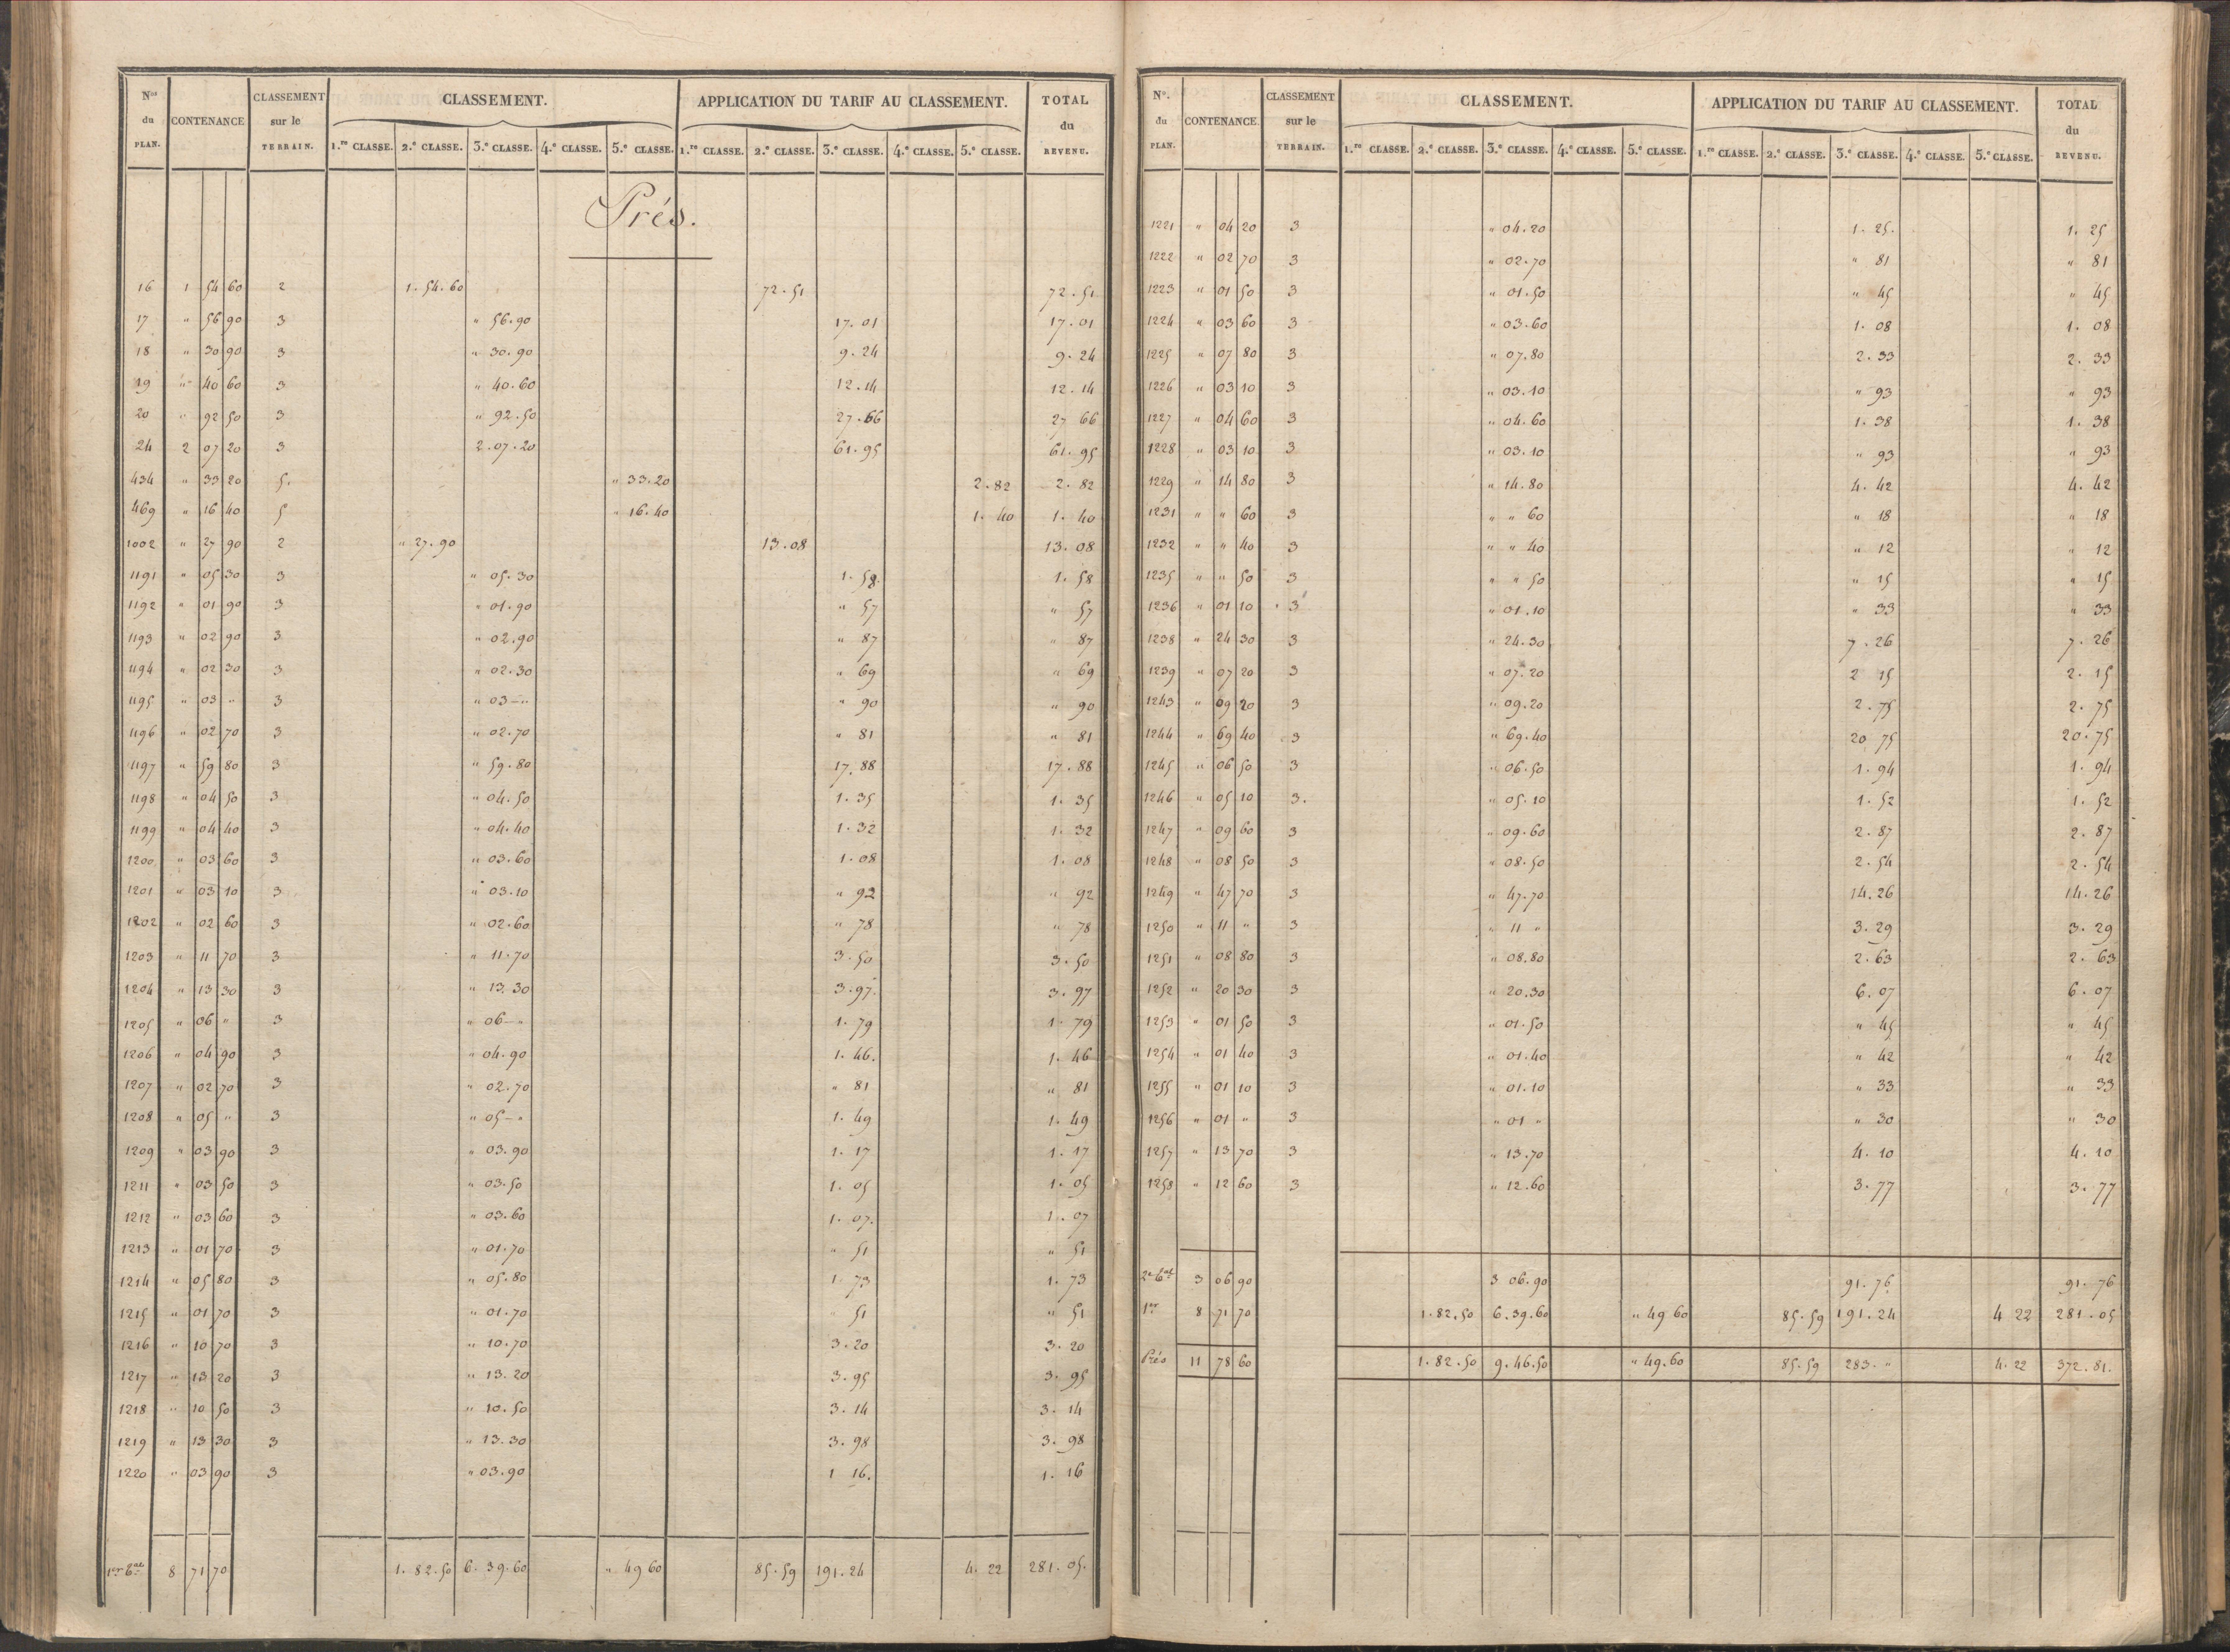 Nos du PLAN. CONTENANCE CLASSEMENT sur le TERRAIN. CLASSEMENT. APPLICATION DU TARIF AU CLASSEMENT. TOTAL du REVENU.
1.re CLASSE. 2.e CLASSE. 3.e CLASSE. 4.e CLASSE. 5.e CLASSE. 1.re CLASSE. 2.e CLASSE. 3.e CLASSE. 4.e CLASSE. 5.e CLASSE.
Prés.
16 1 54 60 2 1.54.60 72.51 72.51
17 " 56 90 3 " 56.90 17.01 17.01
18 " 30 90 3 " 30.90 9.24 9.24
19 " 40 60 3 " 40.60 12.14 12.14
20 " 92 50 3 " 92.50 27.66 27 66
24 2 07 20 3 2.07.20 61.95 61.95
434 " 33 20 5. " 33.20 2.82 2.82
469 " 16 40 5 " 16.40 1.40 1.40
1002 " 27 90 2 " 27.90 13.08 13.08
1191 " 05 30 3 " 05.30 1.58. 1.58
1192 " 01 90 3 " 01.90 " 57 " 57
1193 " 02 90 3 " 02.90 " 87 " 87
1194 " 02 30 3 " 02.30 " 69 " 69
1195 " 03 " 3 " 03-" " 90 " 90
1196 " 02 70 3 " 02.70 " 81 " 81
1197 " 59 80 3 " 59.80 17.88 17.88
1198 " 04 50 3 " 04.50 1.35 1.35
1199 " 04 40 3 " 04.40 1.32 1.32
1200 " 03 60 3 " 03.60 1.08 1.08
1201 " 03 10 3 " 03.10 " 92 " 92
1202 " 02 60 3 " 02.60 " 78 " 78
1203 " 11 70 3 " 11.70 3.50 3.50
1204 " 13 30 3 " 13.30 3.97. 3.97
1205 " 06 " 3 " 06-" 1.79 1.79
1206 " 04 90 3 " 04.90 1.46. 1.46
1207 " 02 70 3 " 02.70 " 81 " 81
1208 " 05 " 3 " 05-" 1.49 1.49
1209 " 03 90 3 " 03.90 1.17 1.17
1211 " 03 50 3 " 03.50 1.05 1.05
1212 " 03 60 3 " 03.60 1.07. 1.07
1213 " 01 70 3 " 01.70 " 51 " 51
1214 " 05 80 3 " 05.80 1.73 1.73
1215 " 01 70 3 " 01.70 " 51 " 51
1216 " 10 70 3 " 10.70 3.20 3.20
1217 " 13 20 3 " 13.20 3.95 3.95
1218 " 10 50 3 " 10.50 3.14 3.14
1219 " 13 30 3 " 13.30 3.98 3.98
1220 " 03 90 3 " 03.90 1 16. 1.16
8 71 70 1.82.50 6.39.60 " 49 60 85.59 191.24 4.22 281.05.
No. du PLAN. CONTENANCE CLASSEMENT sur le TERRAIN. CLASSEMENT. APPLICATION DU TARIF AU CLASSEMENT. TOTAL du REVENU.
1.re CLASSE. 2.e CLASSE. 3.e CLASSE. 4.e CLASSE. 5.e CLASSE. 1.re CLASSE. 2.e CLASSE. 3.e CLASSE. 4.e CLASSE. 5.e CLASSE.
1221 " 04 20 3 " 04.20 1.25. 1.25
1222 " 02 70 3 " 02.70 " 81 " 81
1223 " 01 50 3 " 01.50 " 45 " 45
1224 " 03 60 3 " 03.60 1.08 1.08
1225 " 07 80 3 " 07.80 2.33 2.33
1226 " 03 10 3 " 03.10 " 93 " 93
1227 " 04 60 3 " 04.60 1.38 1.38
1228 " 03 10 3 " 03.10 " 93 " 93
1229 " 14 80 3 " 14.80 4.42 4.42
1231 " " 60 3 " " 60 " 18 " 18
1232 " " 40 3 " " 40 " 12 " 12
1235 " " 50 3 " " 50 " 15 " 15
1236 " 01 10 3 " 01.10 " 33 " 33
1238 " 24 30 3 " 24.30 7.26 7.26
1239 " 07 20 3 " 07.20 2 15 2.15
1243 " 09 20 3 " 09.20 2.75 2.75
1244 " 69 40 3 " 69.40 20 75 20.75
1245 " 06 50 3 " 06.50 1.94 1.94
1246 " 05 10 3. " 05.10 1.52 1.52
1247 " 09 60 3 " 09.60 2.87 2.87
1248 " 08 50 3 " 08.50 2.54 2.54
1249 " 47 70 3 " 47.70 14.26 14.26
1250 " 11 " 3 " 11 " 3.29 3.29
1251 " 08 80 3 " 08.80 2.63 2.63
1252 " 20 30 3 " 20.30 6.07 6.07
1253 " 01 50 3 " 01.50 " 45 " 45
1254 " 01 40 3 " 01.40 " 42 " 42
1255 " 01 10 3 " 01.10 " 33 " 33
1256 " 01 " 3 " 01 " " 30 " 30
1257 " 13 70 3 " 13.70 4.10 4.10
1258 " 12 60 3 " 12.60 3.77 3.77
3 06 90 3 06.90 91.76 91.76
1er 8 71 70 1.82.50 6.39.60 " 49 60 85.59 191.24 4 22 281.05
Prés 11 78 60 1.82.50 9.46.50 " 49.60 85.59 283." 4.22 372.81.